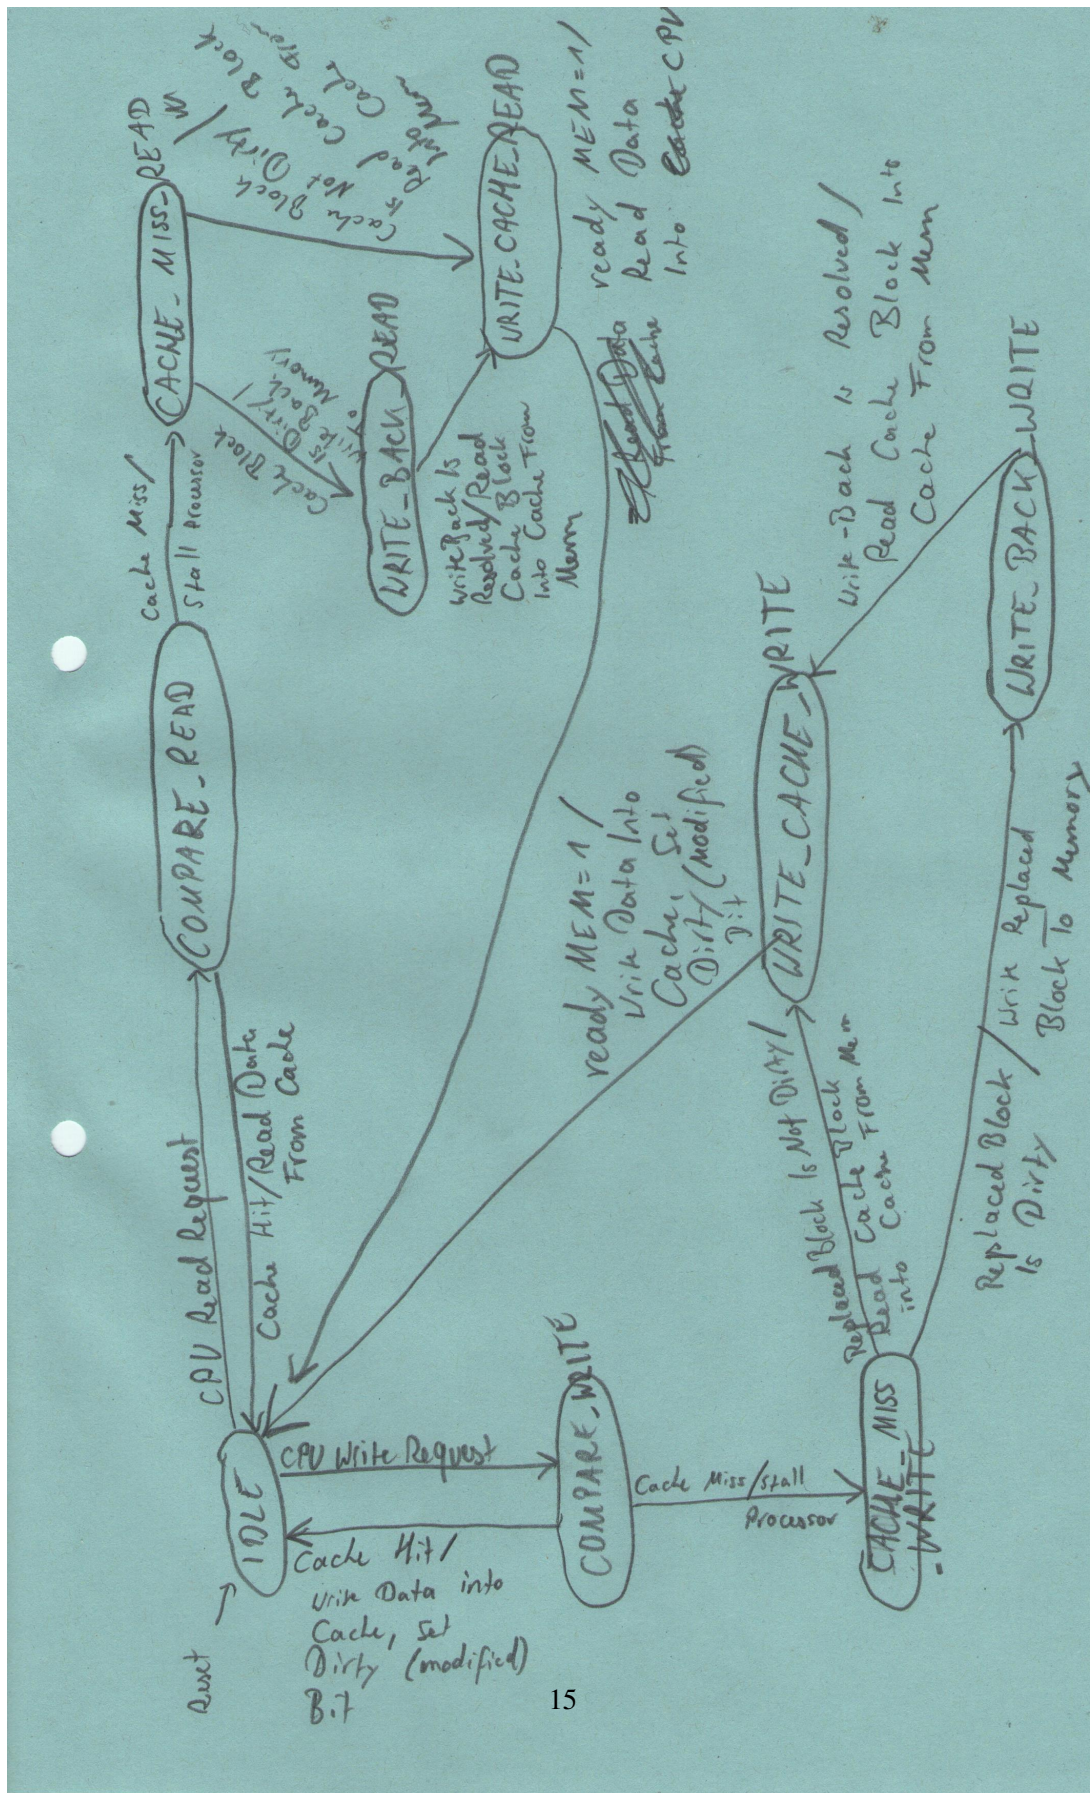 Reset
IDLE
CPU Read Request
Cache Hit/Read Data
From Cache
COMPARE_READ
Cache Miss/
Stall Processor
CACHE_MISS_READ
Cache Block
Is Dirty/
Write Back
To Memory
Cache Block
Is Not Dirty/
Read Cache Block
Into
Cache From
Mem
WRITE_BACK_READ
Write Back Is
Resolved/Read
Cache Block
Into Cache From
Mem
WRITE_CACHE_READ
ready MEM=1/
Read Data
Into Cache CPU
Read Data
From Cache
CPU Write Request
Cache Hit/
Write Data into
Cache, Set
Dirty (modified)
Bit
COMPARE_WRITE
Cache Miss/Stall
Processor
CACHE_MISS
_WRITE
Replaced Block Is Not Dirty/
Read Cache Block
into Cache From Mem
WRITE_CACHE_WRITE
ready MEM=1/
Write Data Into
Cache, Set
Dirty (modified)
Bit
Replaced Block / Write Replaced
Is Dirty Block To Memory
WRITE_BACK_WRITE
Write-Back is Resolved/
Read Cache Block Into
Cache From Mem
15